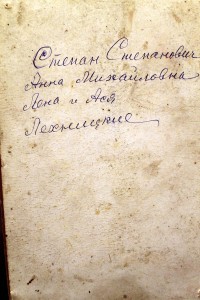 Степан Степанович
Анна Михайловна
Лена и Ася
Лехницкие